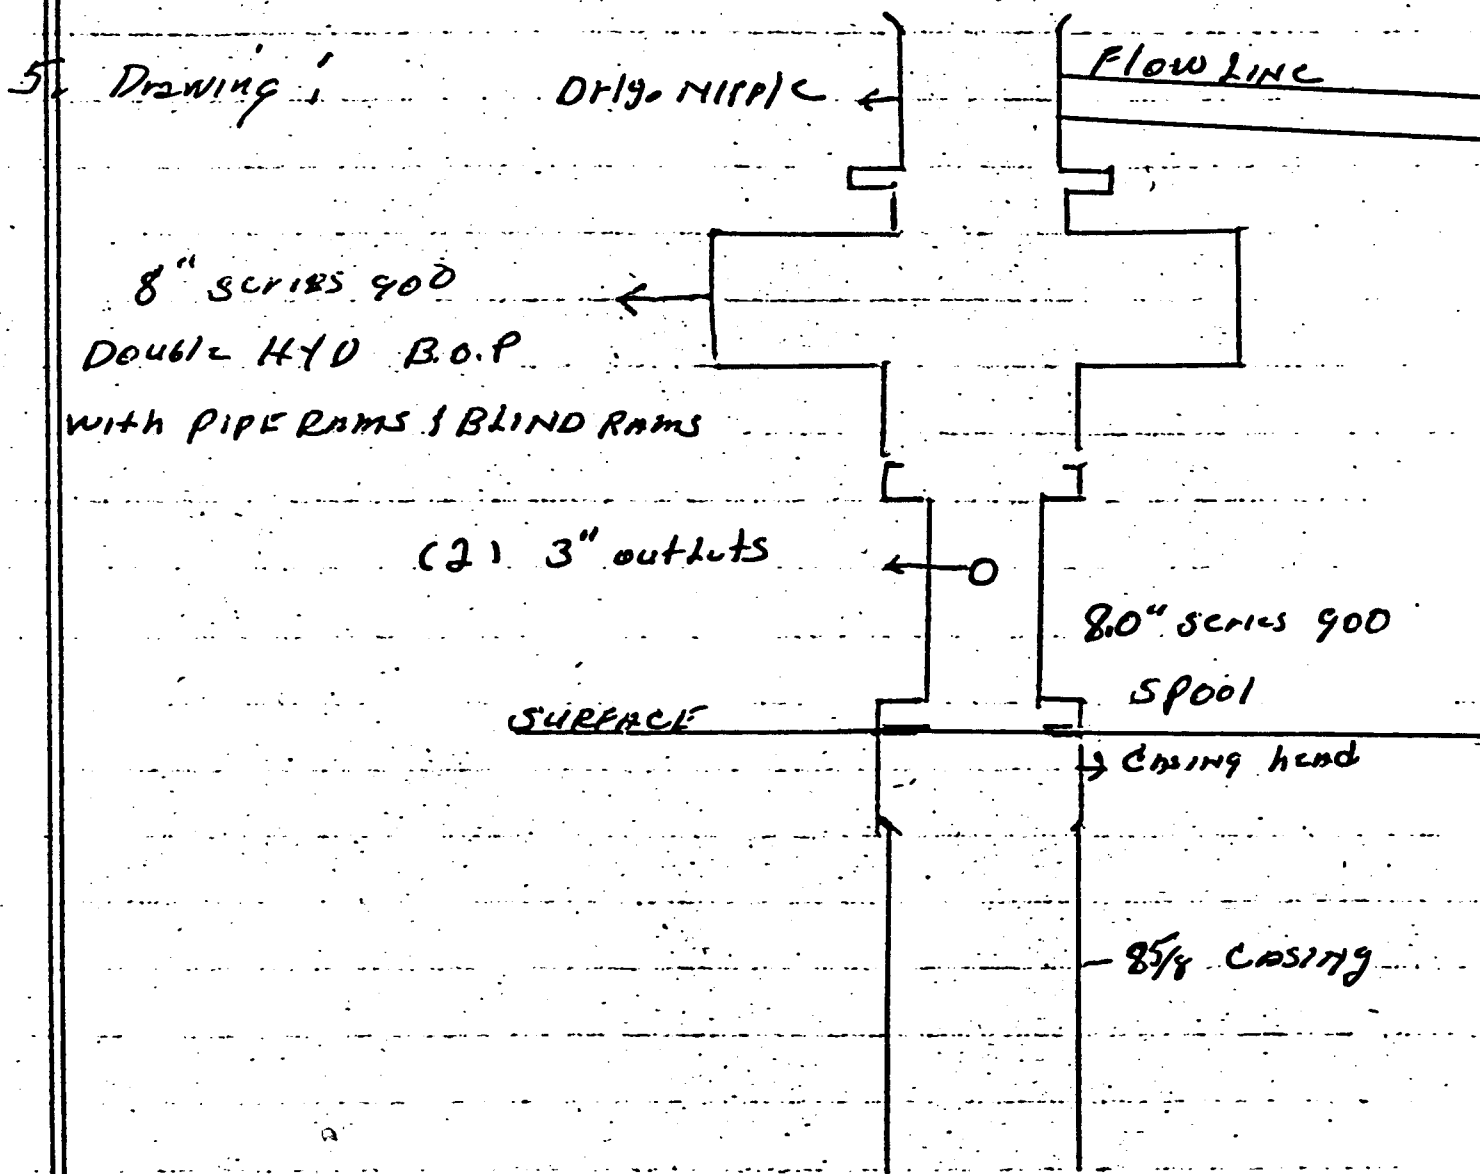 5. Drawing:
Drlg. Nipple
Flow Line
8" series 900
Double HYD B.O.P
with PIPE RAMS & BLIND RAMS
(2) 3" outlets
8.0" series 900
SPool
SURFACE
Casing head
8 5/8 Casing